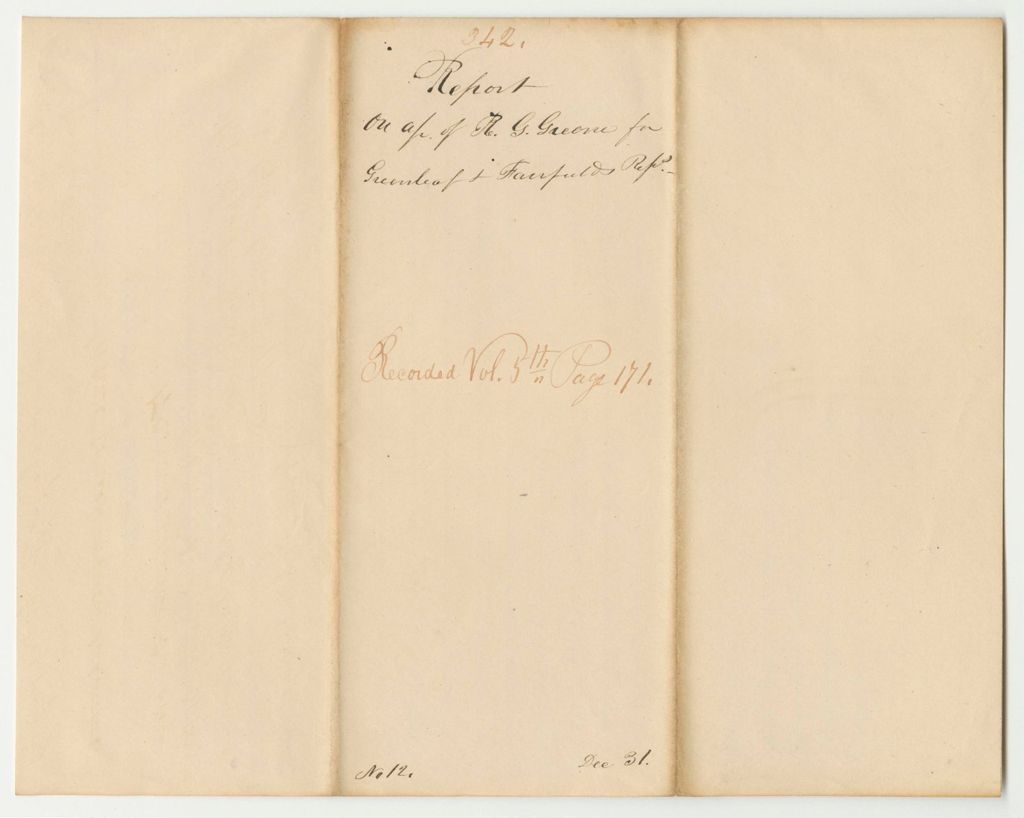 342.
Report
On ap. of R. G. Greene for
Greenleaf & Fairfields Rep.
Recorded Vol. 5th Page 171.
No 12.
Dec 31.